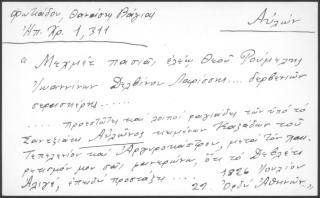 Φωκίδου, Θανάση Βάγιας
Ἠπ. Χρ. 1, 311
Αὐλών
"Μεχμέτ πασιᾶς ἐλέῳ Θεοῦ Ρούμελης
Ἰωαννίνων Δελβίνου Λαρίσσης.... δερβενιῶν
σερασκέρης....
..... προεστῶτες καὶ λοιποὶ ραγιάδες τῶν ὑπὸ τὸ
Σαντζιᾶκι Αὐλῶνος κειμένων Καζάδων τοῦ
Τεπελενίου καὶ Ἀργυροκάστρου, μετὰ τὸν χαι-
ρετισμόν μου σᾶς φανερώνω, ὅτι τὸ Δεβλέτι
Ἀλιγέ, ἐπειδὴ προστάζει....
1826 Ἰουνίου
27. Ὀρδὶ Ἀθηνῶν."